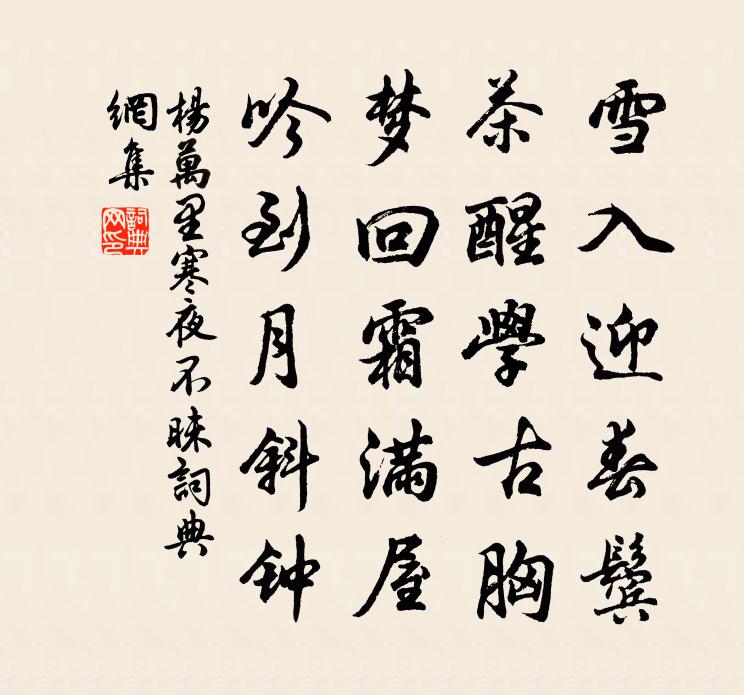 雪入迎春鬓
茶醒學古胸
梦回霜满屋
吟到月斜钟
楊萬里寒夜不昧詞典
網集
詞典
网印